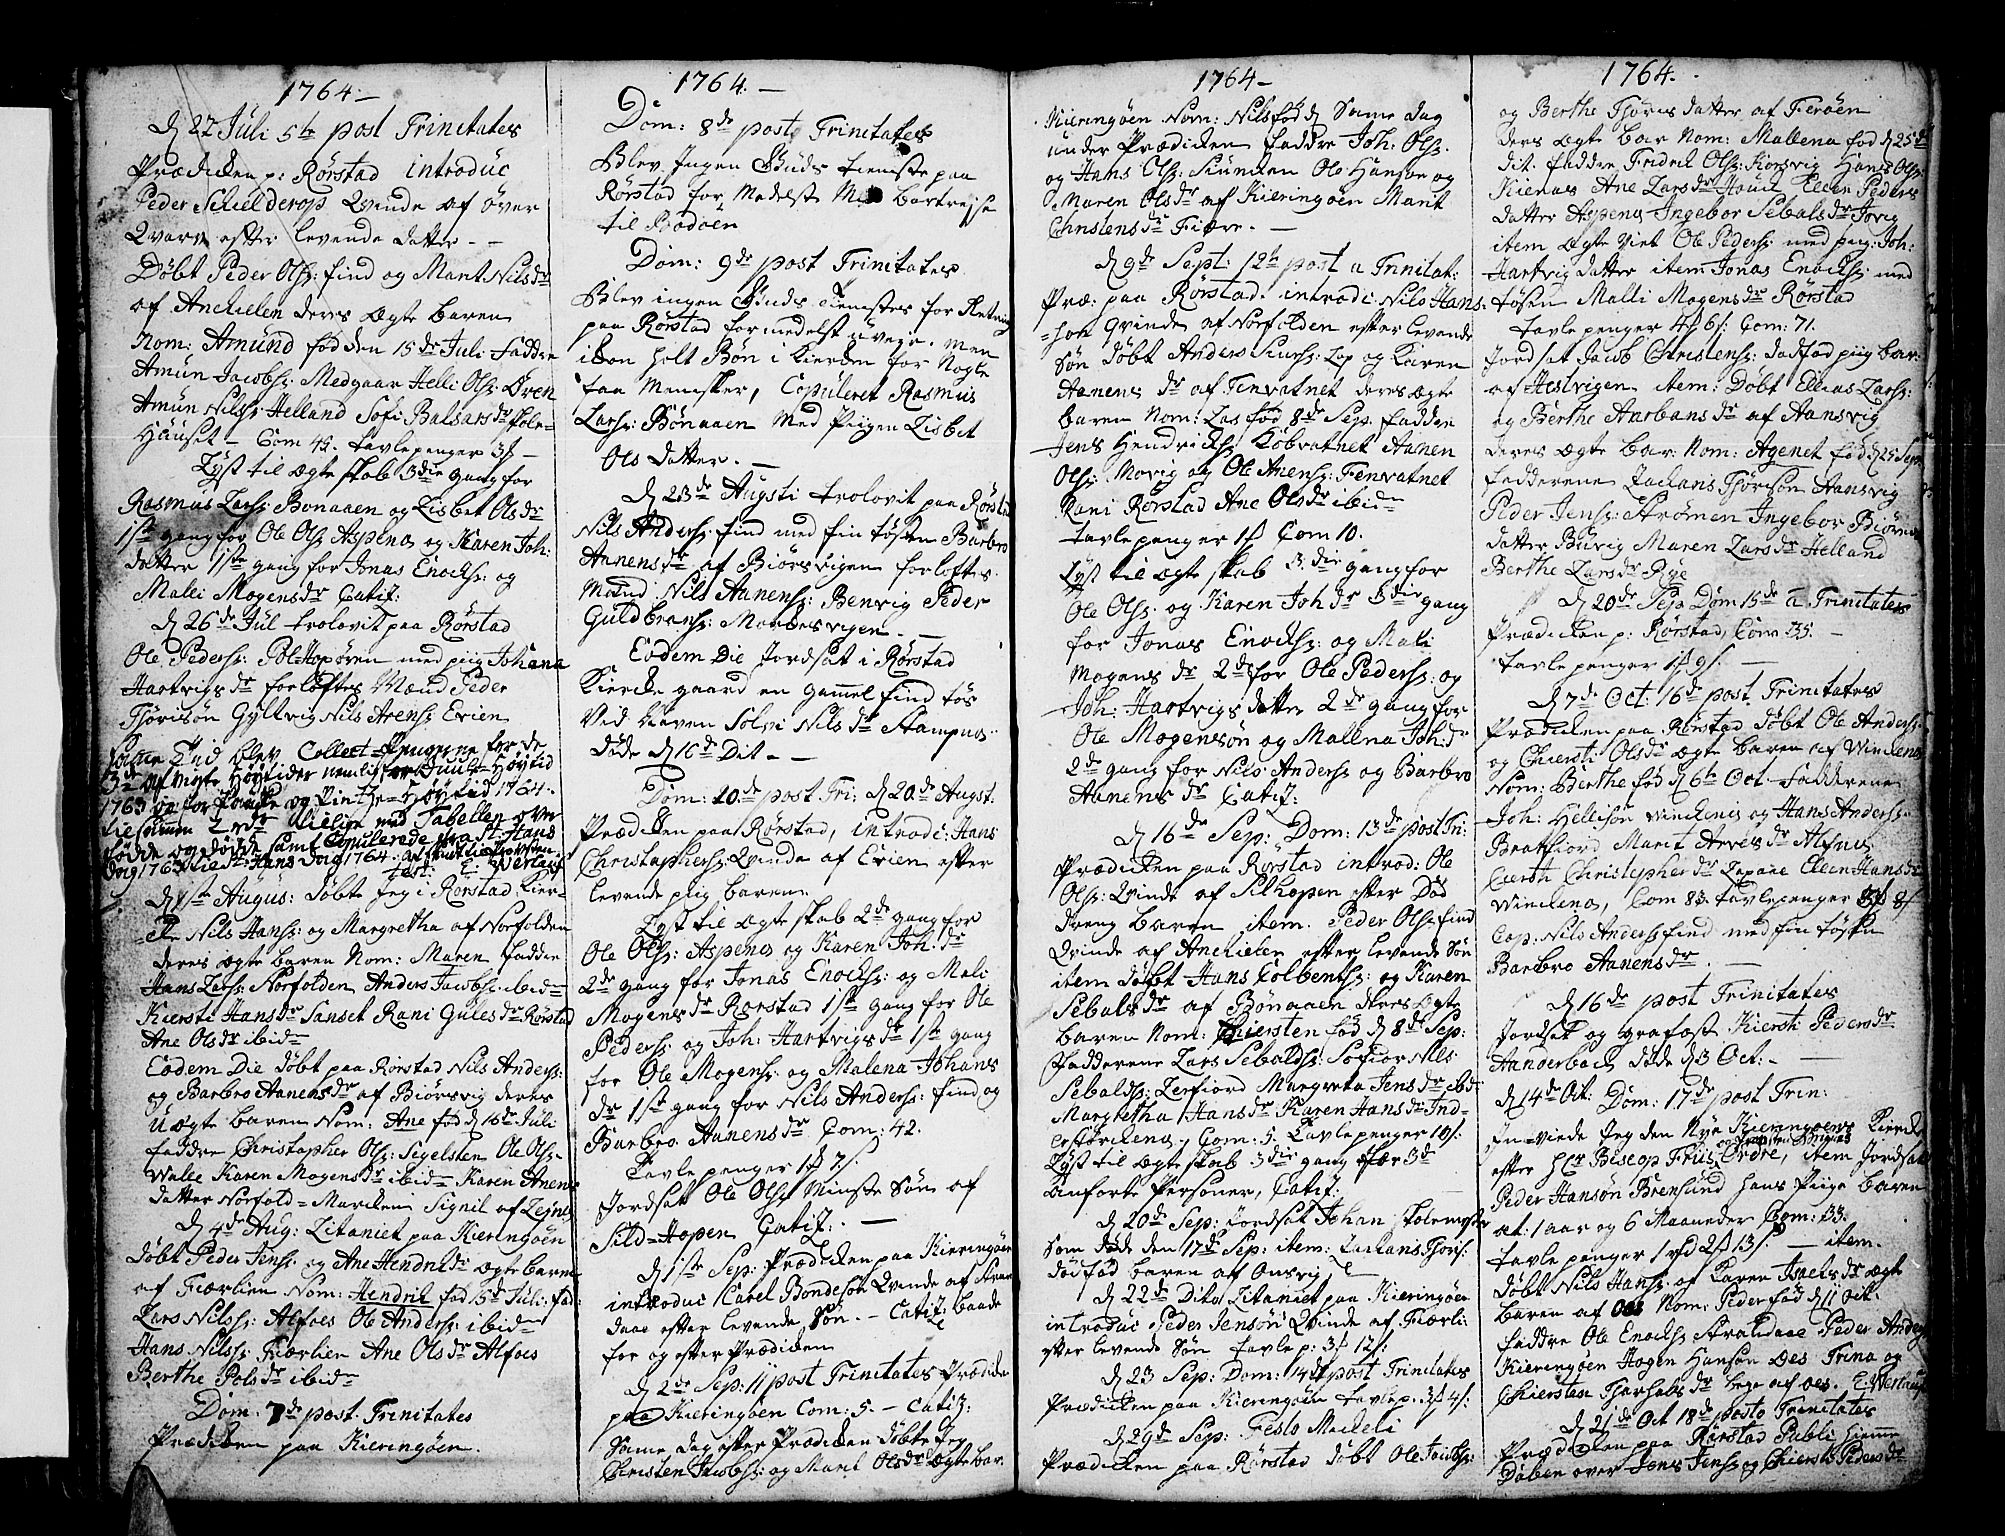 1764.—
D 22 Juli 5te post Trinitates
Prædicken p: Rørstad introduc
Peder Schielderop Qvinde af øver
Qvarv efter levende datter. —
Døbt Peder Ols: find og Marit Nils dr
af Anekielen deres Ægte baren
Nom: Amund fød den 15de Juli Faddre
Amun Jacobs: Medgaar Helli Ols: Øren
Amun Nils: Helland Sofi Balsars dr Fole=
Hauset — Com 45. tavlepenger 3
Lyst til Ægte skab 3die gang for
Rasmus Lars: Bonaaen og Lisbet Ols dr
1ste gang for Ole Ols: Aspenes og Karen Joh:
datter 1ste gang for Jonas Enocks: og
Mali Mogens dr Catiz:
D 26de Jul trolovit paa Rørstad
Ole Peders: Pol=Hopøren med piig Johana
Hartvigs dr forløftes Mænd Peder
Thorisøn Gyltvig Nils Arens: Evien
Tid blev Collect=Pengerne for de
3de Høytider nemlig for Juule=Høytid
1763 og for Paaske og Pintze=Høytid 1764.
med Tabellen over
fødde og dødde samt Copulerede fra St: Hans
dag 1763 til St: Hans dag 1764.
test: E. Werlauf
D 1ste Augus: døbte Jeg i Rørstad Kier=
=cke Nils Hans: og Margretha af Norfolden
deres Ægte baren Nom: Maren faddre
Hans Lars: Norfolden Anders Jacobs: ibid=
Kiersti Hans dr Sanset Rani Gules dr Rørstad
Ane Ols dr ibid=
Eodem Die døbt paa Rørstad Nils Anders:
og Barbro Aanens dr af Biørsvig deres
U ægte baren Nom: Ane fød D 16de Juli
faddre Christopher Ols: Segelsten Ole Ols:
Walle Karen Mogens dr ibid= Karen Anens
datter Norfold= Marcken Signil af Lejnes
D 4de Aug: Litaniet paa Kieringøen
døbt Peder Jens: og Ane Hendri dr Ægte barne
af Fiærlien Nom: Hendrik fød 15de Juli: fad=
Lars Nils: Alfoes Ole Anders: ibid=
Hans Nils: Fiærlien Ane Ols dr Alfoes
Berthe Pols dr ibid=
Dom: 7de post Trinitates
Prædicken paa Kieringøen.
1764.—
Dom: 8de posto Trinitates
Blev Ingen Guds tieneste paa
Rørstad for medelst Min bortrejse
til Bodøen
Dom: 9de post Trinitates
Blev ingen Guds tienestes for Retning
paa Rørstad formedelst uveyr. men
ikon holt Bøn i Kiercken for Nogle
faa Menisker, Copuleret Rasmus
Lars: Bønaaen Med Piigen Lisbet
Ols datter. —
D 23de Augsti trolovit paa Rørstad
Nils Anders: find med fin tøsen Barbro
Aanens dr af Biørsvigen forløftes
Mænd Nils Aanens: Benvig Peder
Guldbrans: Mørkesvigen. —
Eodem Die Jordsat i Rørstad
Kiercke gaard en gammel find tøs
Ved Naven Solvi Nils dr Stampnes
døde D 16de Dit — —
Dom: 10de post Tri: D 20de Augst
Prædicken paa Rørstad, introdi: Hans
Christophers: Qvinde af Evien efter
levende piig baren.
Lyst til Ægte skab 2de gang for
Ole Ols: Aspenes og Karen Joh: dr
2de gang for Jonas Enocks: og Mali
Mogens dr Rørstad 1ste gang for Ole
Peders: og Joh: Hartvigs dr 1ste gang
for Ole Mogens: og Malena Johans
dr 1ste gang for Nils Anders: find og
Barbro Aanens dr Com: 42.
Tavle penger 1 7
Jordsat Ole Ols: Minste Søn af
Sild=Hopen Catiz: —
D 1ste Sep: Prædicken paa Kieringøen
introduc Carel Bondesøn Qvinde af Strau
daae efter levende Søn. — Catiz: baade
for og efter Prædicken
D 2de Sep: 11 post Trinitates Prædicke
paa Kieringøen Com: 5. — Catiz:
Same dag efter Prædicken døbte Jeg
Christen Jacobs: og Marit Ols dr Ægte bar.
1764—
Kieringøen Nom: Nils fød D Same dag
under Prædicken faddre Joh: Ols:
og Hans Ols: Siunden Ole Hansøn og
Maren Ols dr af Kieringøen Marit
Christens dr Fiære. —
D 9de Sept: 12te post a Trinitat:
Præ: paa Rørstad. introdi: Nils Hans:
=søn Qvinde af Norfolden efter levende
Søn døbt Anders Siurs: Lop og Karen
Aanens dr af Fenvatnet deres Ægte
baren Nom: Las fød 8de Sep. faddre
Jens Hendricks: Kobvatnet Aanen
Ols: Movig og Ole Anens: Fenvatnet
Rani Rørstad Ane Ols dr ibid=
tavlepenger 1 Com 10.
Lyst til Ægte skab 3.die gang for
Ole Ols: og Karen Joh dr 3die gang
for Jonas Enocks: og Mali
Mogens dr 2de for Ole Peders: og
Joh: Hartvigs datter 2de gang for
Ole Mogensøn og Malena Joh: dr
2de gang for Nils Anders: og Barbro
Aanens dr Catiz:
D 16de Sep: Dom: 13de post Tri:
Prædicken paa Rørstad introd: Ole
Ols: Qvinde af Silhopen efter Død
dreng baren item. Peder Ols: find
Qvinde af Anekielen efter levende Søn
item døbt Hans Colbents: og Karen
Sebals dr af Bønaaen deres Ægte
baren Nom: Chiersten fød D 8de Sep:
Fadderene Lars Sebalds: Sofior Nils
Sebalds: Lerfiord Margreta Jens dr ibid:
Margretha Hans dr Karen Hans dr Ind=
Com: 5. Tavlepenger 10
Lyst til Ægte skab 3die gang for 3de
Anforte Personer, Catiz:
D 20de Sep: Jordsat Johan Skolemester
Som døde den 17de Sep: item: Zackans Thoris:
dødfød baren af Ansvig
D 22de Dito Litaniet paa Kieringøen
introduc Peder Jensøn Qvinde af Fiærli:
efter levende Søn tavle p: 3 12
D 23 Sep: Dom: 14de post Trinitates
Prædicken paa Kieringøen tavle p: 3 4
D 29de Sep: Festo Maileli
Prædicken paa Rørstad døbt Ole Jacobs:
1764.
og Berthe Thoris datter af Ferøen
ders Ægte bar Nom: Mallena fød D 25de
dit: faddre Fridrik Ols: Kiorsvig Hans Ols:
Kienas Ane Lars dr Houit Ellen Peders
datter Aspenes Ingebor Sebals dr Jovig
item Ægte viet Ole Peders: med piig: Joh:
Hartvig datter item Jonas Enocks: med
tøsen Malli Mogens dr Rørstad
tavle penger 4 6 Com: 71.
Jordsat Jacob Christens: dødfød piig bar:
af Hestvigen item: Døbt Ellias Lars:
og Børthe Aarbans dr af Aansvig
deres Ægte bar: Nom: Agenet fød D 25 Sept:
fadderene Zackans Thorison Aansvig
Peder Jens: Strømen Ingebor Biørns
datter Buvig Maren Lars dr Helland
Berthe Lars dr Rye
D 20de Sep Dom 15de a Trinitates
Prædicken p: Rørstad, Com 35. —
tavle penger 1 9 —
D 7de Oct: 16de post Trinitates
Prædicken paa Rørstad døbt Ole Anders:
og Chiersti Ols dr Ægte baren af Winckenes
Nom: Berthe fød D 6te Oct. Fadderene
Joh: Hellisøn Winckenes og Hans Anders:
Bratfiord Marit Arves dr Alfnes
Christepher dr Ellen Hans dr
Winckenes, Com 83 tavlepenger 3 8
Cop: Nils Anders: find med fin tøsen
Barbro Aanens dr. —
D 16de post Trinitates
Jordsat og grafæst Kiersti Peders dr
Haanderback døde D 3 Oct: —
D 14de Oct: Dom: 17de post Trin:
In=viede Jeg den Nye Kieringøens Kiercke
efter Hr Biscop Friis Ordre, item Jordsat
Peder Hansøn Brensund hans Piige baren
at 1 aar og 6 Maaneder Com: 33.
tavle penger 1 rd 2 13 — item.
døbt Nils Hans: og Karen Isachs dr Ægte
baren af Oes Nom: Peder fød D 11 Oct:
faddre Ole Enocks: Stranddaae Peder Anders
Kieringøen Hagen Hansøn Oes Trina og
Chiersten Tharhals dr bege af oes. E. Werlauf
D 21de Oct 18de posto Trinitates
Prædicken paa Rørstad Publi hiemme
Døben over Jens Jens: og Chiersti Peders dr